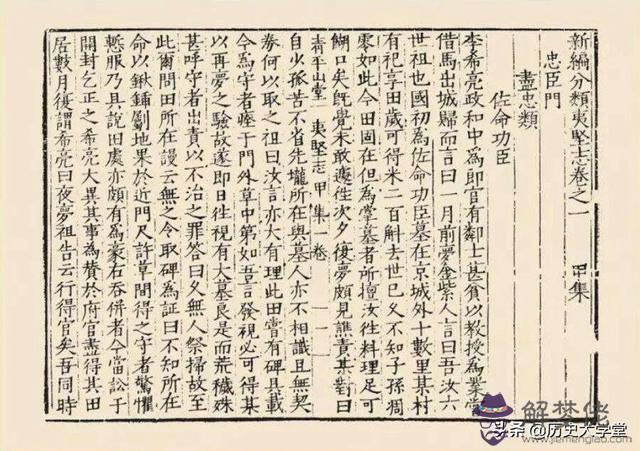 新編分類夷堅志卷之一　甲集
忠臣門
盡忠類
佐命功臣
李希亮政和中為郎官有鄰士甚貧以教授為業嘗
借馬出城歸而言曰一月前夢金紫人言曰吾汝六
世祖也國初為佐命功臣墓在京城外十數里某村
有祀享田歲可得米二百斛去世已久不知子孫凋
零如此今田固在但為掌墓者所擅汝往料理足可
餬口矣既覺未敢遽往次夕復夢頗見譙責某對曰
自少孤苦不省先壠所在與墓人亦不相識且無契
券何以取之祖曰汝言亦大有理此田嘗有碑具載
今為守者瘞于門外草中第如吾言發視必可得某
以再夢之驗故遂即日往視有大墓良是而荒穢殊
甚呼守者出責以不治之罪答曰久無人祭掃故至
此爾問田所在謾云無之令取碑為証曰不知所在
命以鍬鋪劚地果於近門尺許草間得之守者驚懼
慙服乃具說田處亦頗有為豪右吞併者今當訟于
開封乞正之希亮大異其事為贊於府官盡得其田
居數月復謂希亮曰夜夢祖告云行得官矣吾同時
清平山堂　夷堅志　甲集一卷　一
解梦佬
www.jiemenglao.com
头条@历史大学堂